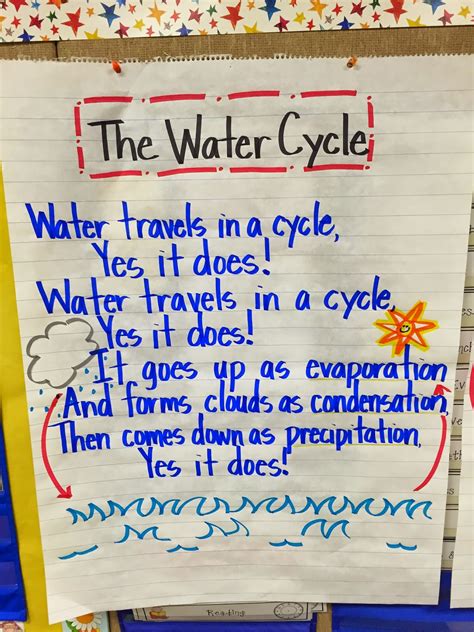 The Water Cycle
Water travels in a cycle,
Yes it does!
Water travels in a cycle,
Yes it does!
It goes up as evaporation
And forms clouds as condensation,
Then comes down as precipitation,
Yes it does!
Reading